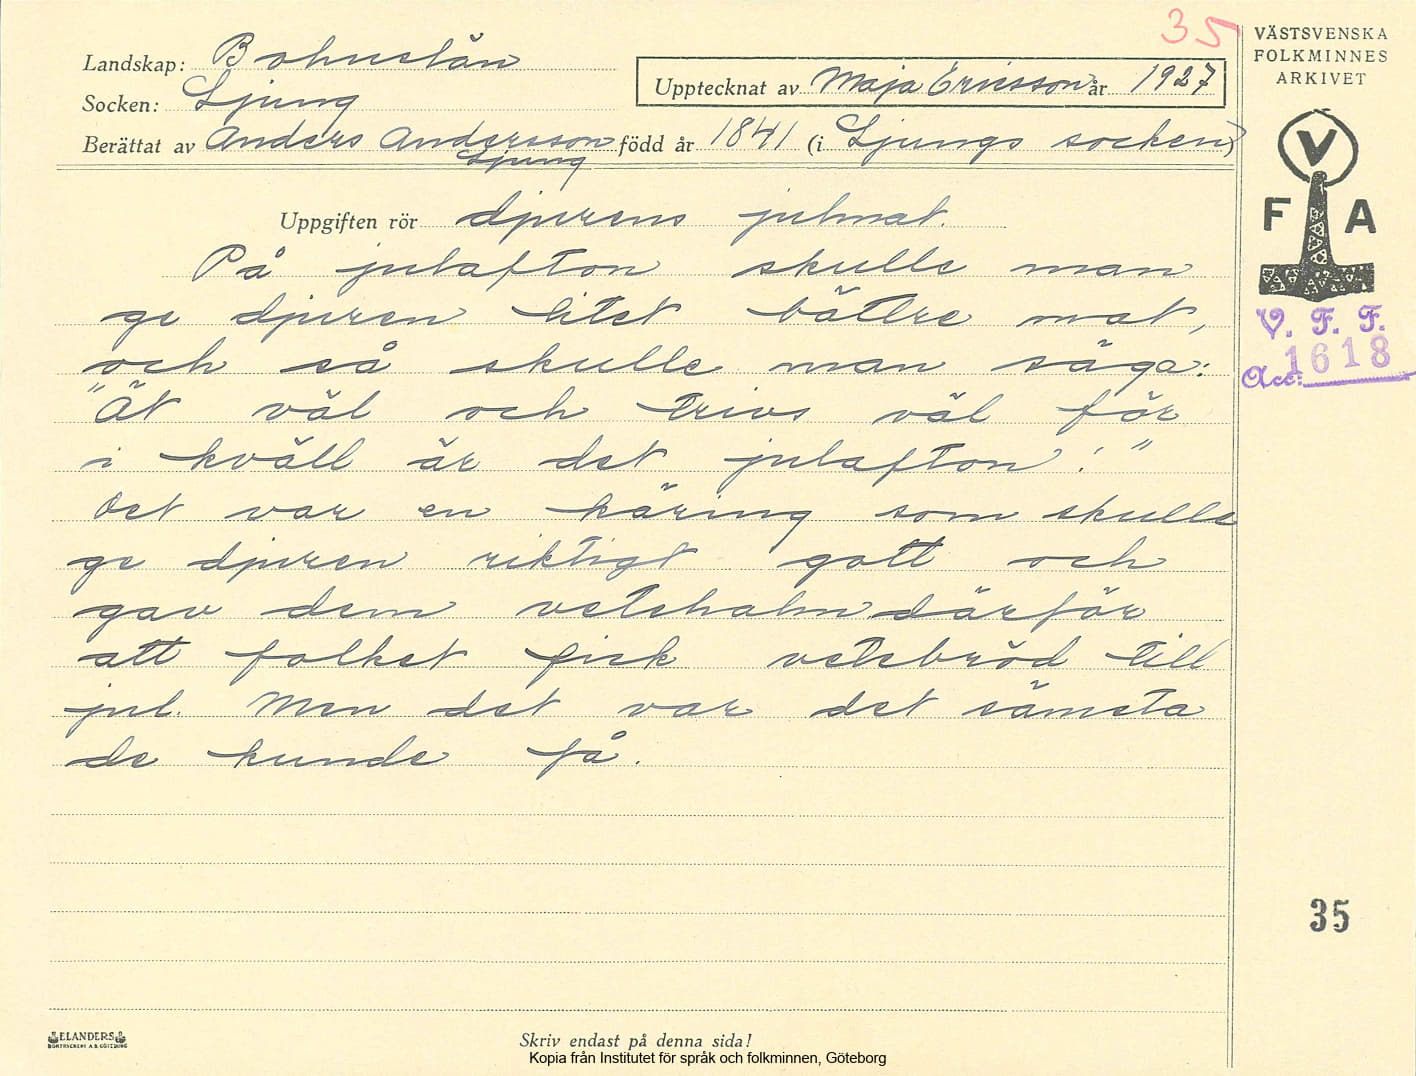 35
VÄSTSVENSKA
FOLKMINNES
ARKIVET
Landskap: Bohuslän
Upptecknat av Maja Ericsson år 1927
Socken: Ljung
Berättat av Anders Andersson född år 1841 (i Ljungs socken)
Ljung
V
F A
Uppgiften rör djurens julmat.
På julafton skulle man
ge djuren litet bättre mat,
och så skulle man säga:
"Ät väl och trivs väl för
i kväll är det julafton!"
Det var en käring som skulle
ge djuren riktigt gott och
gav dem vetehalm därför
att folket fick vetebröd till
jul. Men det var det sämsta
de kunde få.
V. F. F.
Acc: 1618
35
ELANDERS
BOKTRYCKERI A.B. GÖTEBORG
Skriv endast på denna sida!
Kopia från Institutet för språk och folkminnen, Göteborg